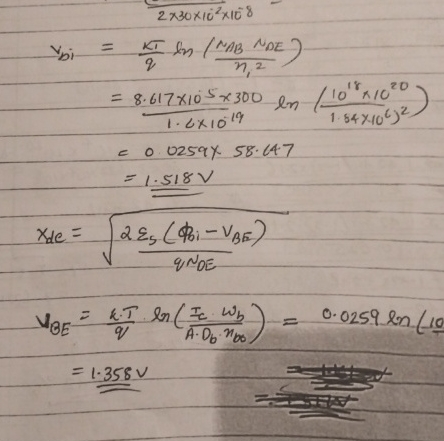 2×30×10⁻²×10⁻⁸
V_bi = KT/q ln (N_AB N_DE / n_i²)
= 8.617×10⁻⁵×300 / 1.6×10⁻¹⁹ ln (10¹⁸×10²⁰ / (1.84×10⁶)²)
= 0.0259× 58.647
= 1.518 V
x_de = √(2ε_s (Φ_bi − V_BE) / qN_DE)
V_BE = k.T/q . ln (I_c . W_b / A.D_b.n_bo) = 0.0259 ln (10
= 1.358 V